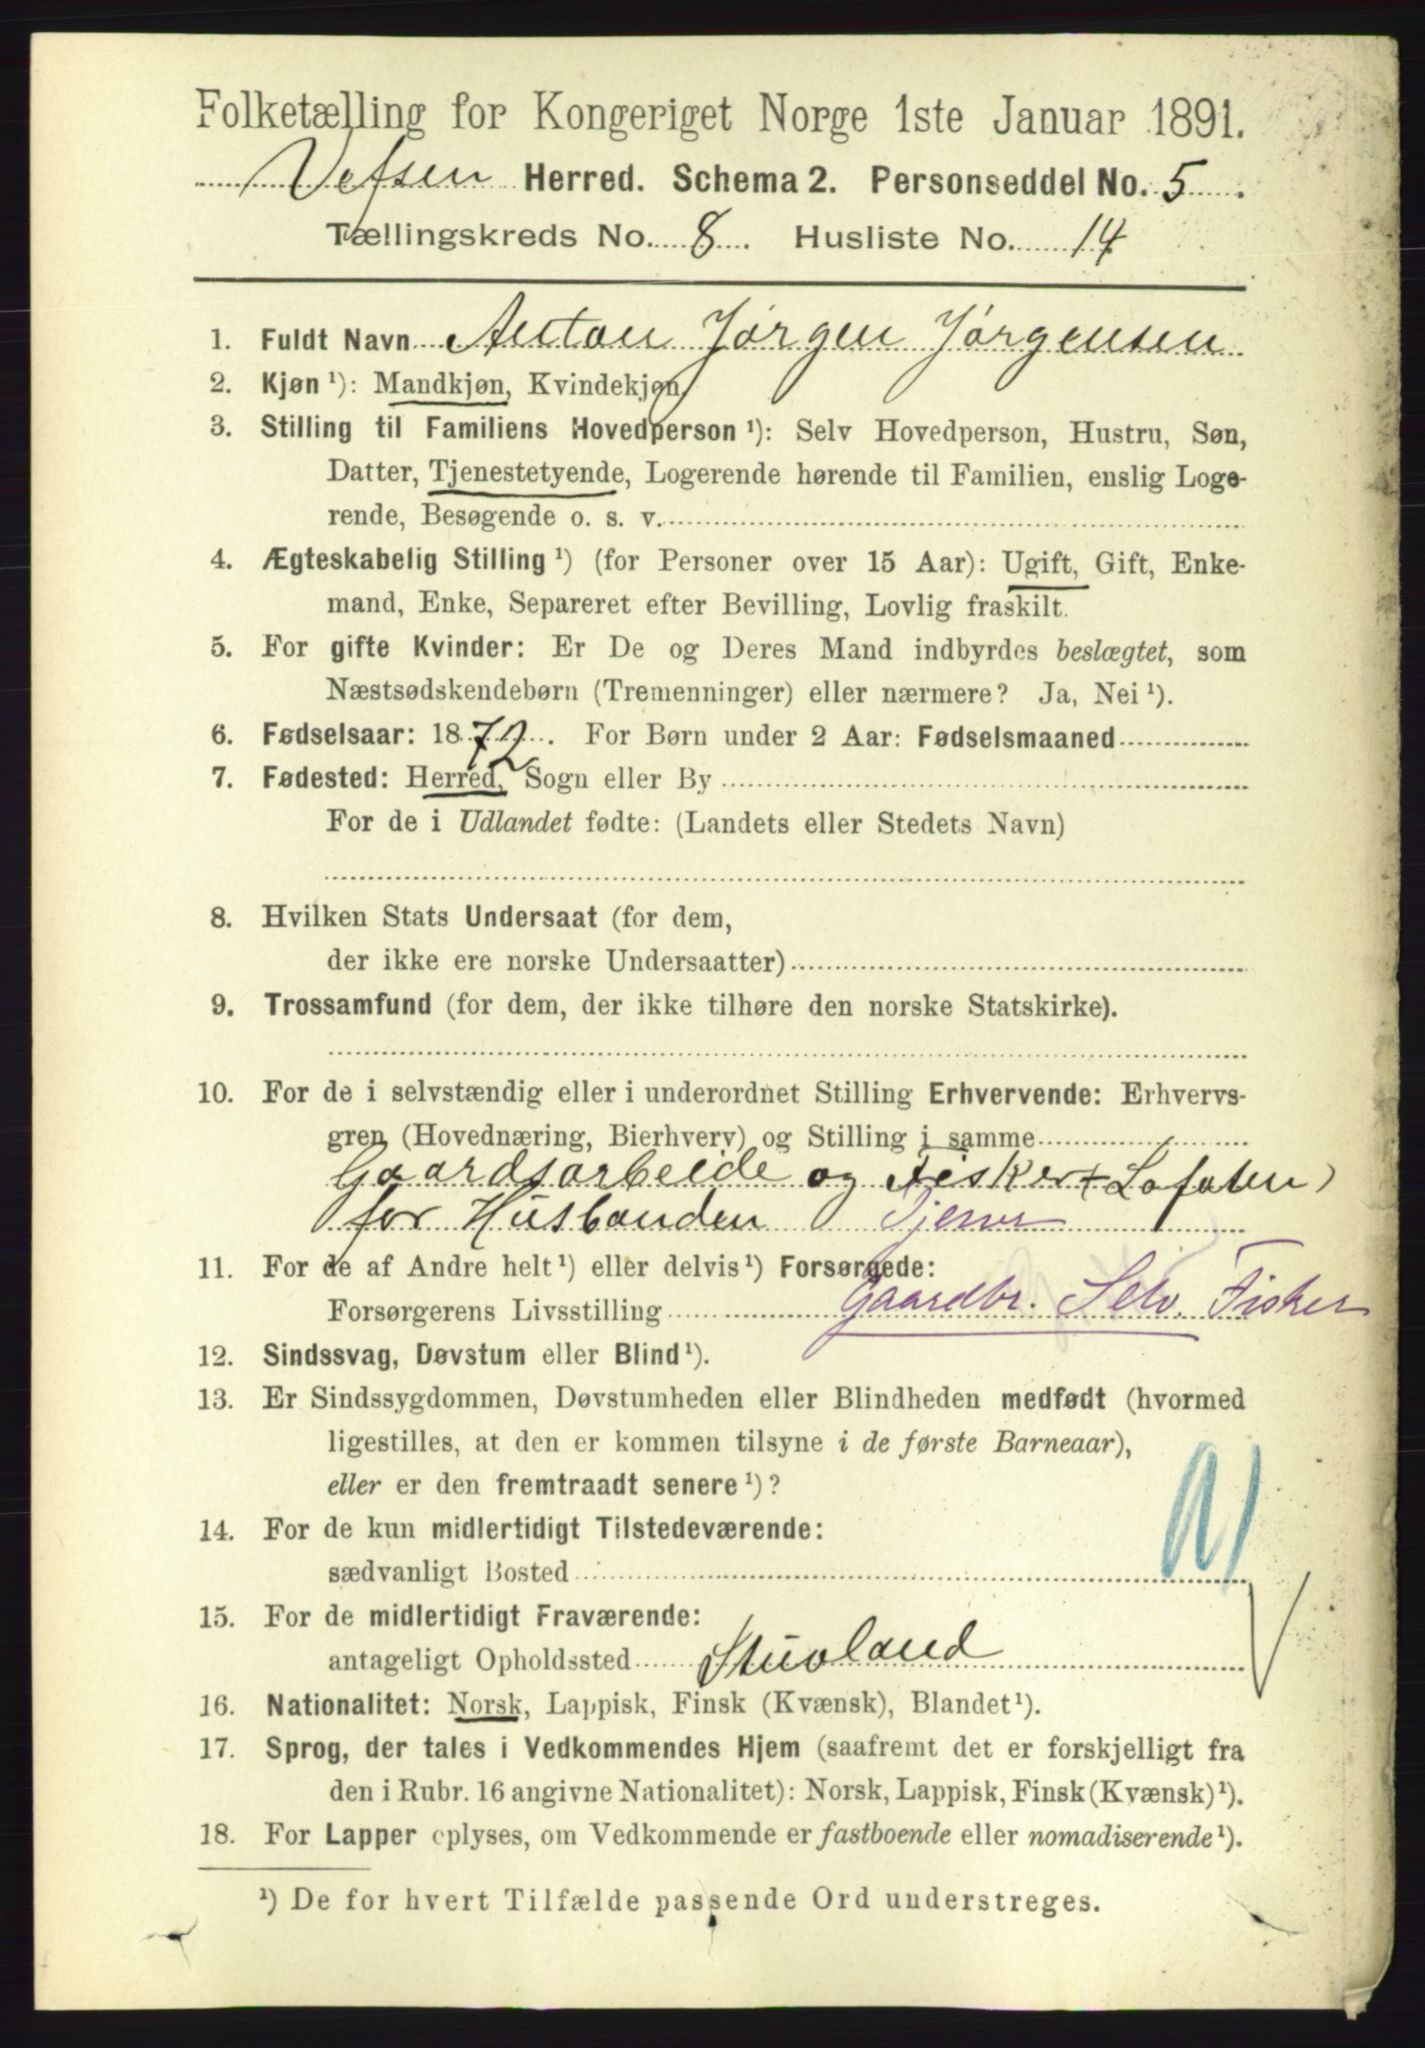 Folketælling for Kongeriget Norge 1ste Januar 1891.
Vefsen Herred. Schema 2. Personseddel No. 5.
Tællingskreds No. 8. Husliste No. 14
1. Fuldt Navn Anton Jørgen Jørgensen
2. Kjøn ¹): Mandkjøn, Kvindekjøn,
3. Stilling til Familiens Hovedperson ¹): Selv Hovedperson, Hustru, Søn,
Datter, Tjenestetyende, Logerende hørende til Familien, enslig Loge-
rende, Besøgende o. s. v.
4. Ægteskabelig Stilling ¹) (for Personer over 15 Aar): Ugift, Gift, Enke-
mand, Enke, Separeret efter Bevilling, Lovlig fraskilt.
5. For gifte Kvinder: Er De og Deres Mand indbyrdes beslægtet, som
Næstsødskendebørn (Tremenninger) eller nærmere? Ja, Nei ¹).
6. Fødselsaar: 1872. For Børn under 2 Aar: Fødselsmaaned
7. Fødested: Herred, Sogn eller By
For de i Udlandet fødte: (Landets eller Stedets Navn)
8. Hvilken Stats Undersaat (for dem,
der ikke ere norske Undersaatter)
9. Trossamfund (for dem, der ikke tilhøre den norske Statskirke).
10. For de i selvstændig eller i underordnet Stilling Erhvervende: Erhvervs-
gren (Hovednæring, Bierhverv) og Stilling i samme
Gaardsarbeide og Fisker Lofoten)
for Husbonden Tjener
11. For de af Andre helt ¹) eller delvis ¹) Forsørgede:
Forsørgerens Livsstilling Gaardbr. Selv. Fisker
12. Sindssvag, Døvstum eller Blind ¹).
13. Er Sindssygdommen, Døvstumheden eller Blindheden medfødt (hvormed
ligestilles, at den er kommen tilsyne i de første Barneaar),
eller er den fremtraadt senere ¹)?
14. For de kun midlertidigt Tilstedeværende:
sædvanligt Bosted
15. For de midlertidigt Fraværende:
antageligt Opholdssted Stuvland
16. Nationalitet: Norsk, Lappisk, Finsk (Kvænsk), Blandet ¹).
17. Sprog, der tales i Vedkommendes Hjem (saafremt det er forskjelligt fra
den i Rubr. 16 angivne Nationalitet): Norsk, Lappisk, Finsk (Kvænsk) ¹).
18. For Lapper oplyses, om Vedkommende er fastboende eller nomadiserende ¹).
¹) De for hvert Tilfælde passende Ord understreges.